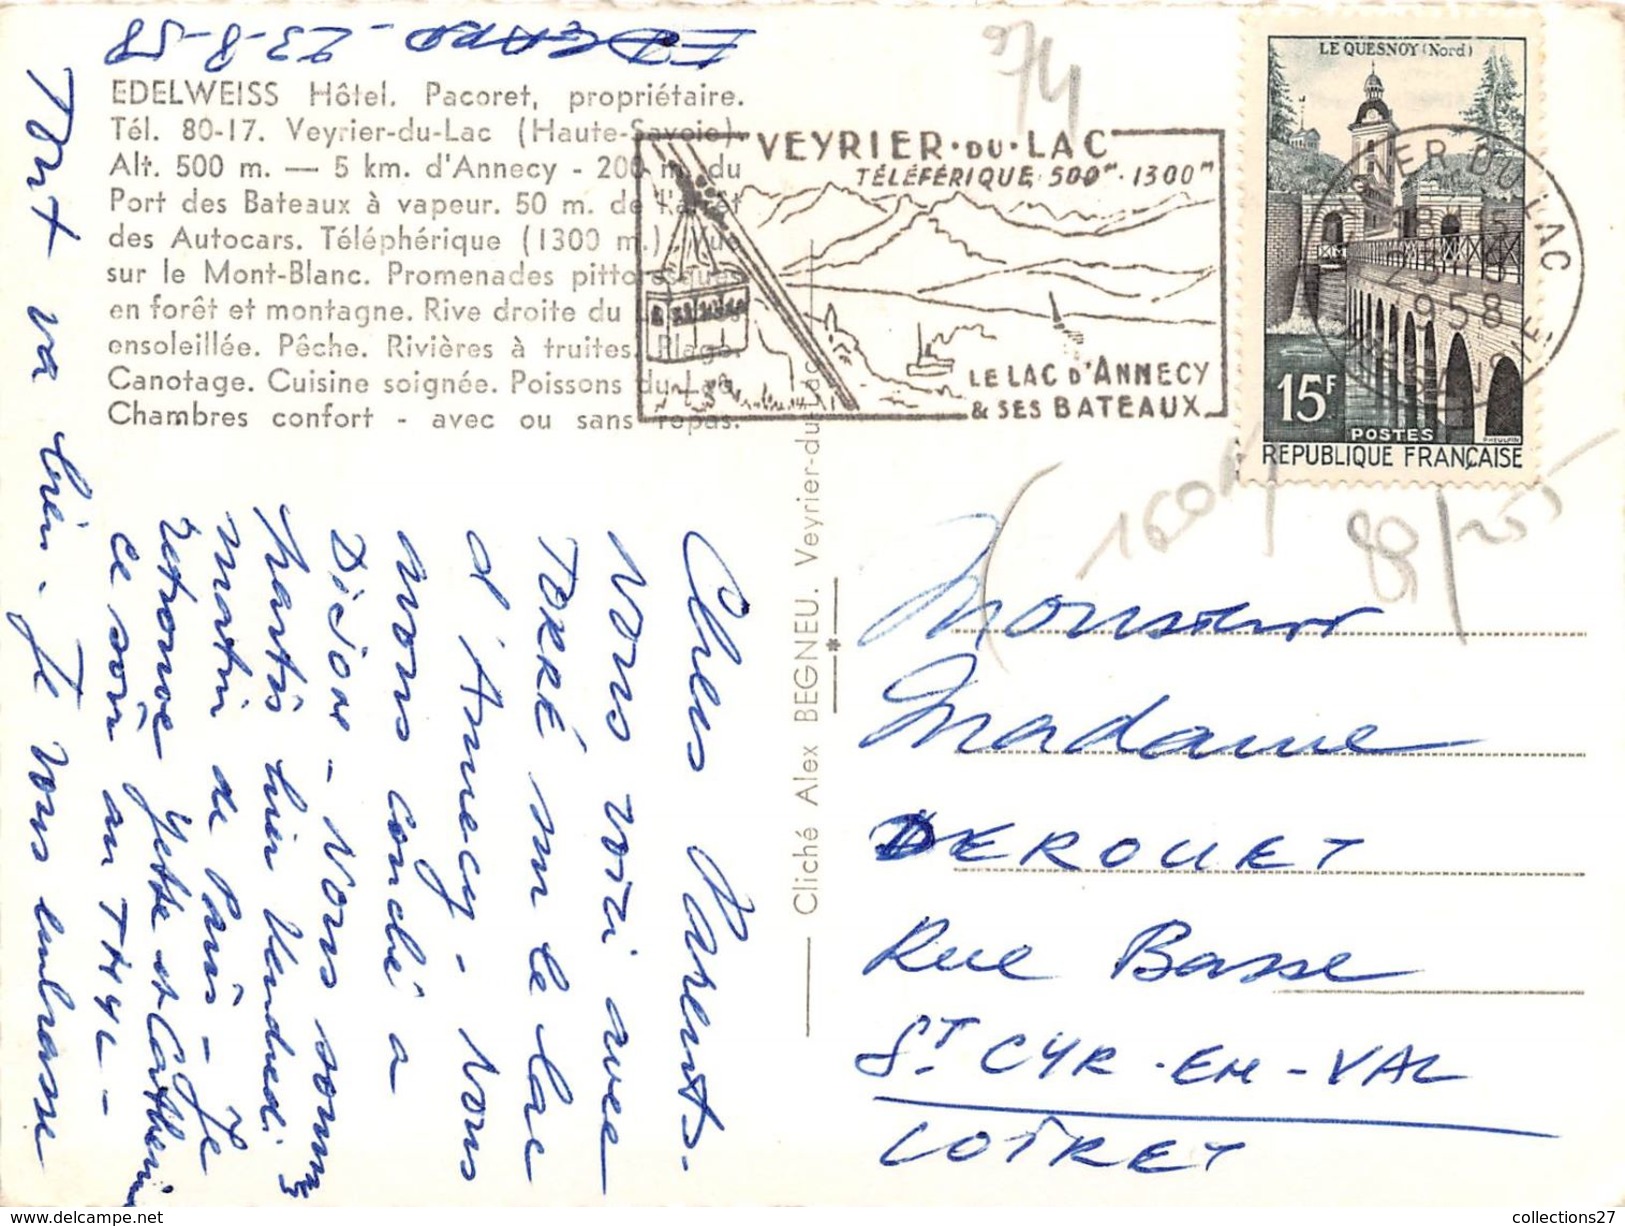 EDGARD - 23-8-58
EDELWEISS Hôtel. Pacoret, propriétaire.
Tél. 80-17. Veyrier-du-Lac (Haute-Savoie).
Alt. 500 m. — 5 km. d'Annecy - 200 m. du
Port des Bateaux à vapeur. 50 m. de l'arrêt
des Autocars. Téléphérique (1300 m.). Vue
sur le Mont-Blanc. Promenades pittoresques
en forêt et montagne. Rive droite du Lac
ensoleillée. Pêche. Rivières à truites. Plage.
Canotage. Cuisine soignée. Poissons du Lac.
Chambres confort - avec ou sans repas.
VEYRIER·DU·LAC
TÉLÉFÉRIQUE 500m·1300m
LE LAC D'ANNECY
& SES BATEAUX
74
LE QUESNOY (Nord)
15F
POSTES
PHEULPIN
REPUBLIQUE FRANÇAISE
VEYRIER DU LAC
18H15
23-8
1958
HTE SAVOIE
Chers Parents.
Nous voici avec
DÉDÉ sur le lac
d'Annecy - Nous
avons couché à
Dijon - Nous sommes
partis hier Vendredi
matin de Paris - Je
retrouve Yette et Catherine
ce soir au THYL -
Tout va bien. Je vous embrasse
Cliché Alex BEGNEU. Veyrier-du-Lac
Monsieur
Madame
DEROUET
Rue Basse
ST CYR-EN-VAL
LOIRET
collections27